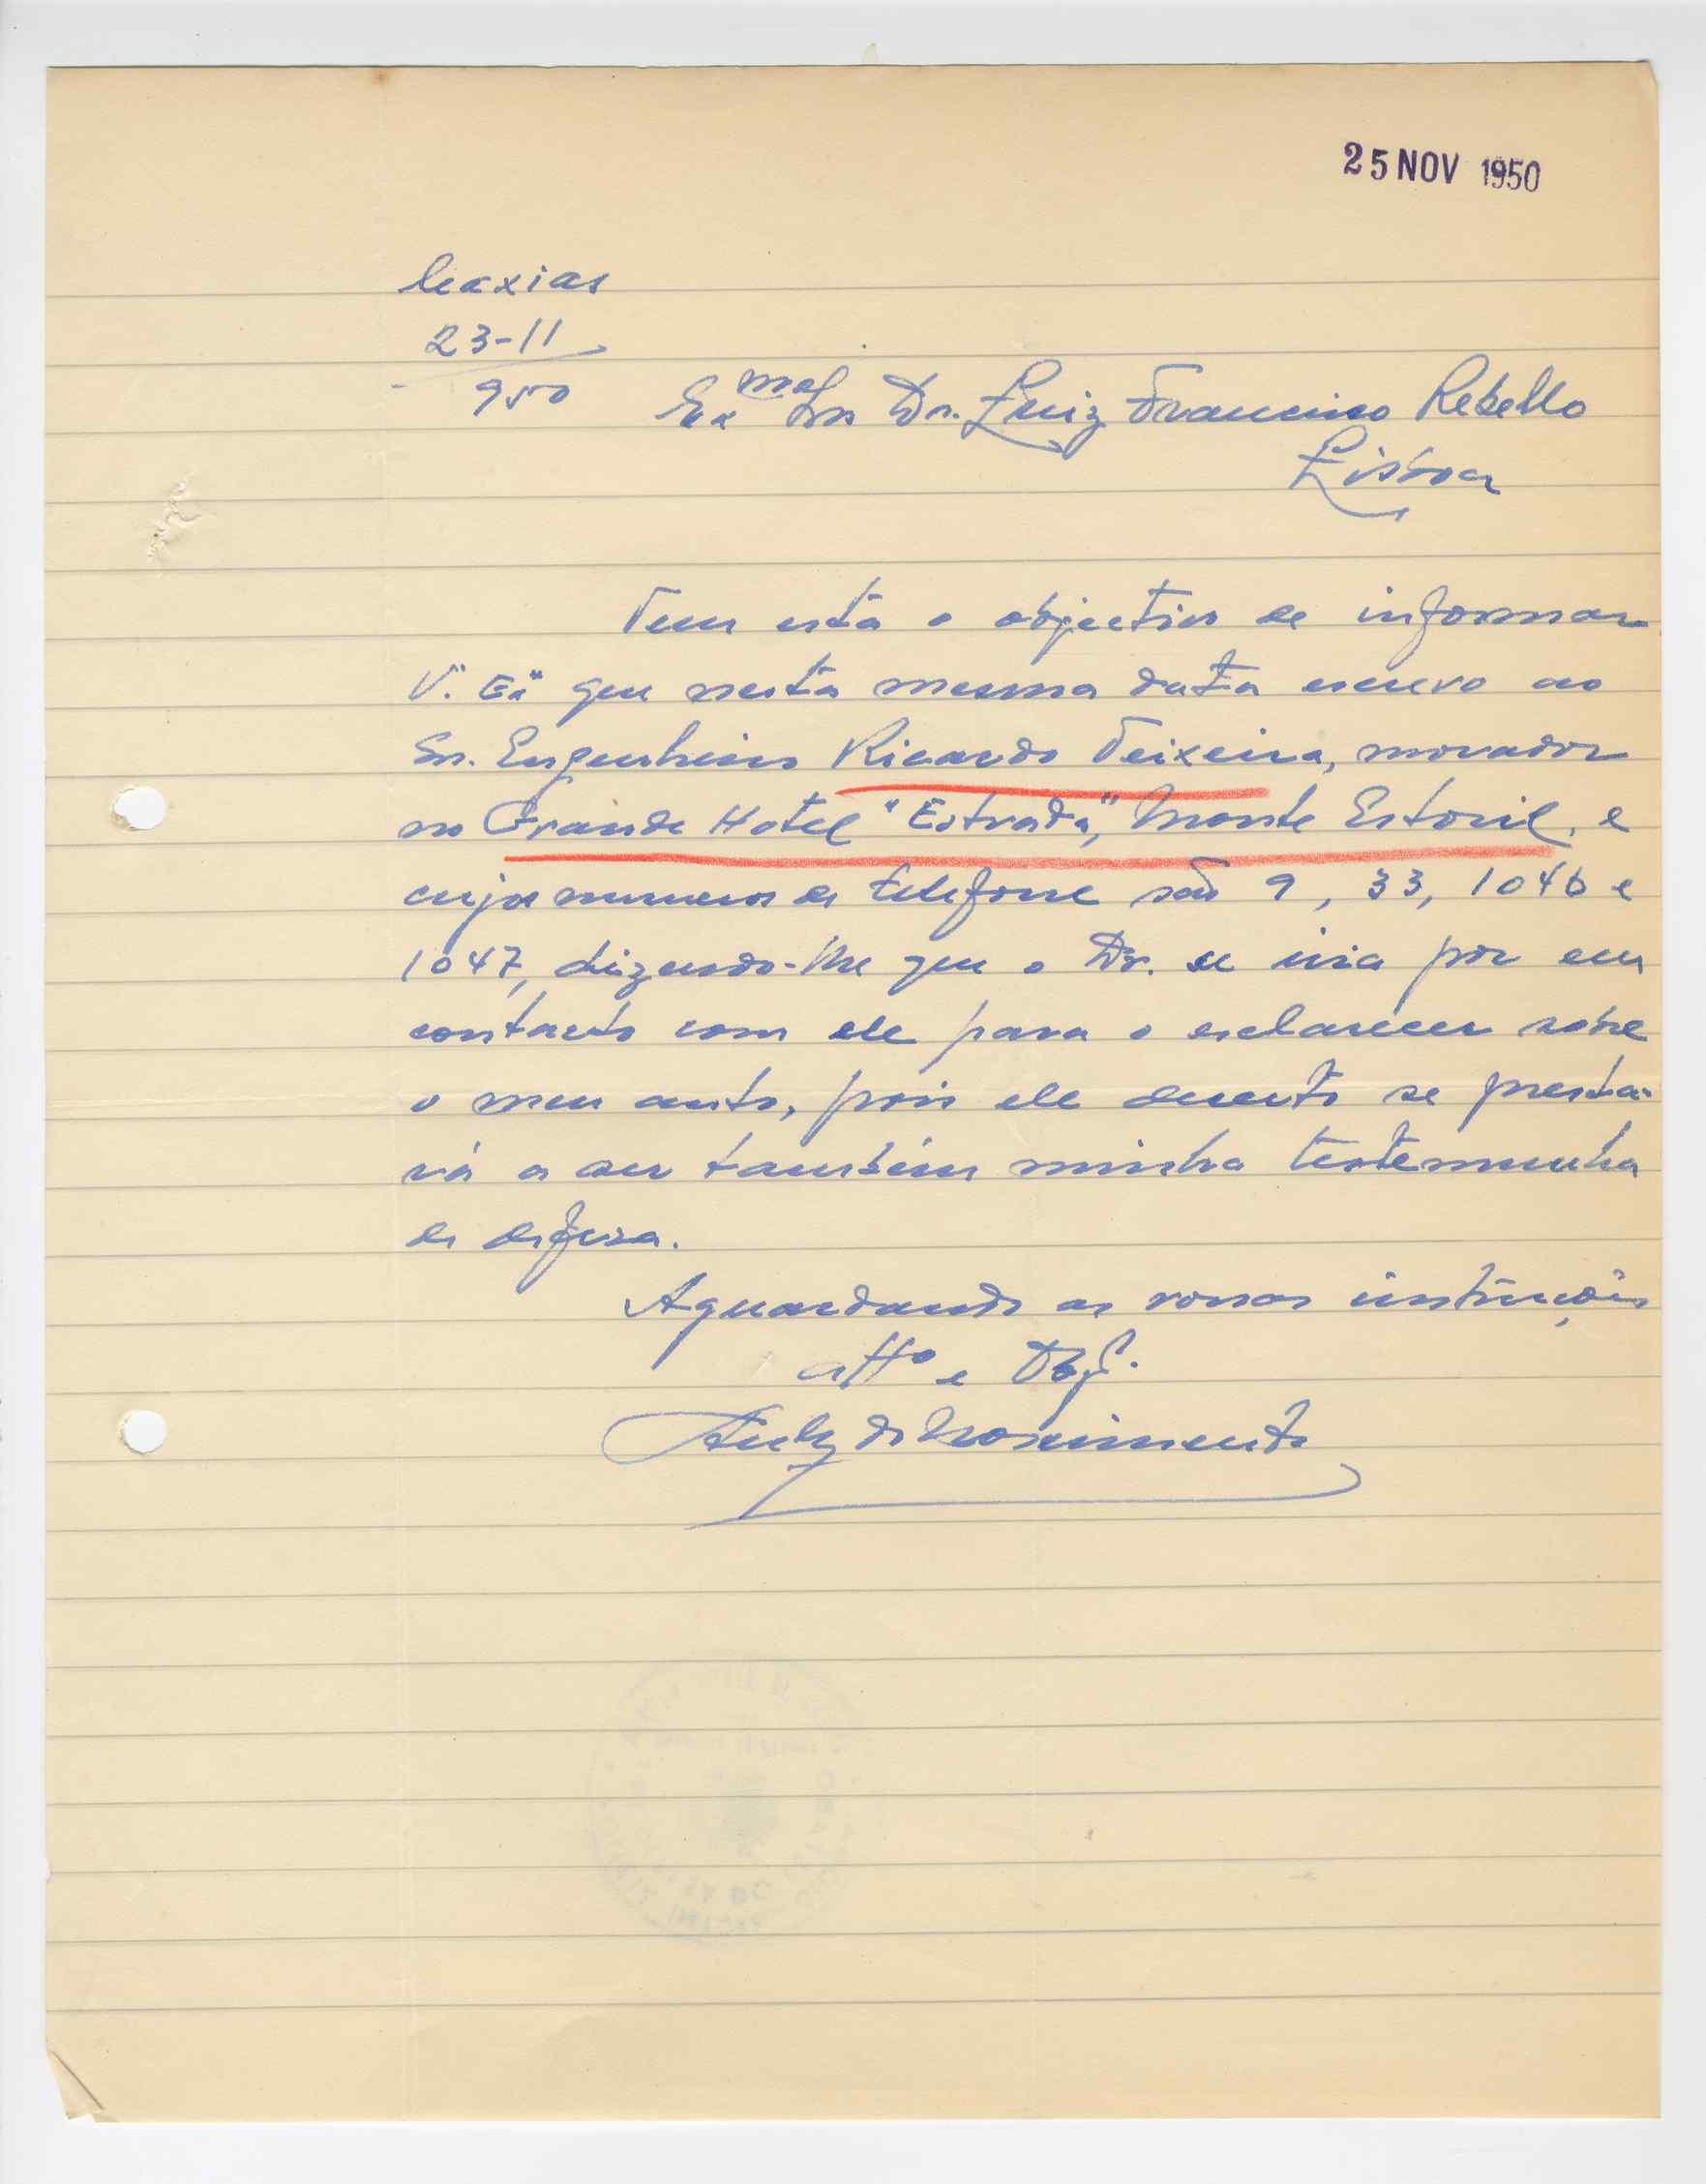 25 NOV 1950
Caxias
23-11
950
Exmo Snr Dr. Luiz Francisco Rebello
Lisboa
Tem esta o objectivo de informar
V. Exª que nesta mesma data escrevo ao
Sr. Engenheiro Ricardo Teixeira, morador
no Grande Hotel "Estrada," Monte Estoril, e
cujos numeros de telefone são 9, 33, 1046 e
1047, dizendo-lhe que o Dr. se iria por em
contacto com ele para o esclarecer sobre
o meu auto, pois ele decerto se presta-
rá a ser também minha testemunha
de defesa.
Aguardando as vossas instruções
attº e Obgº.
do Nascimento